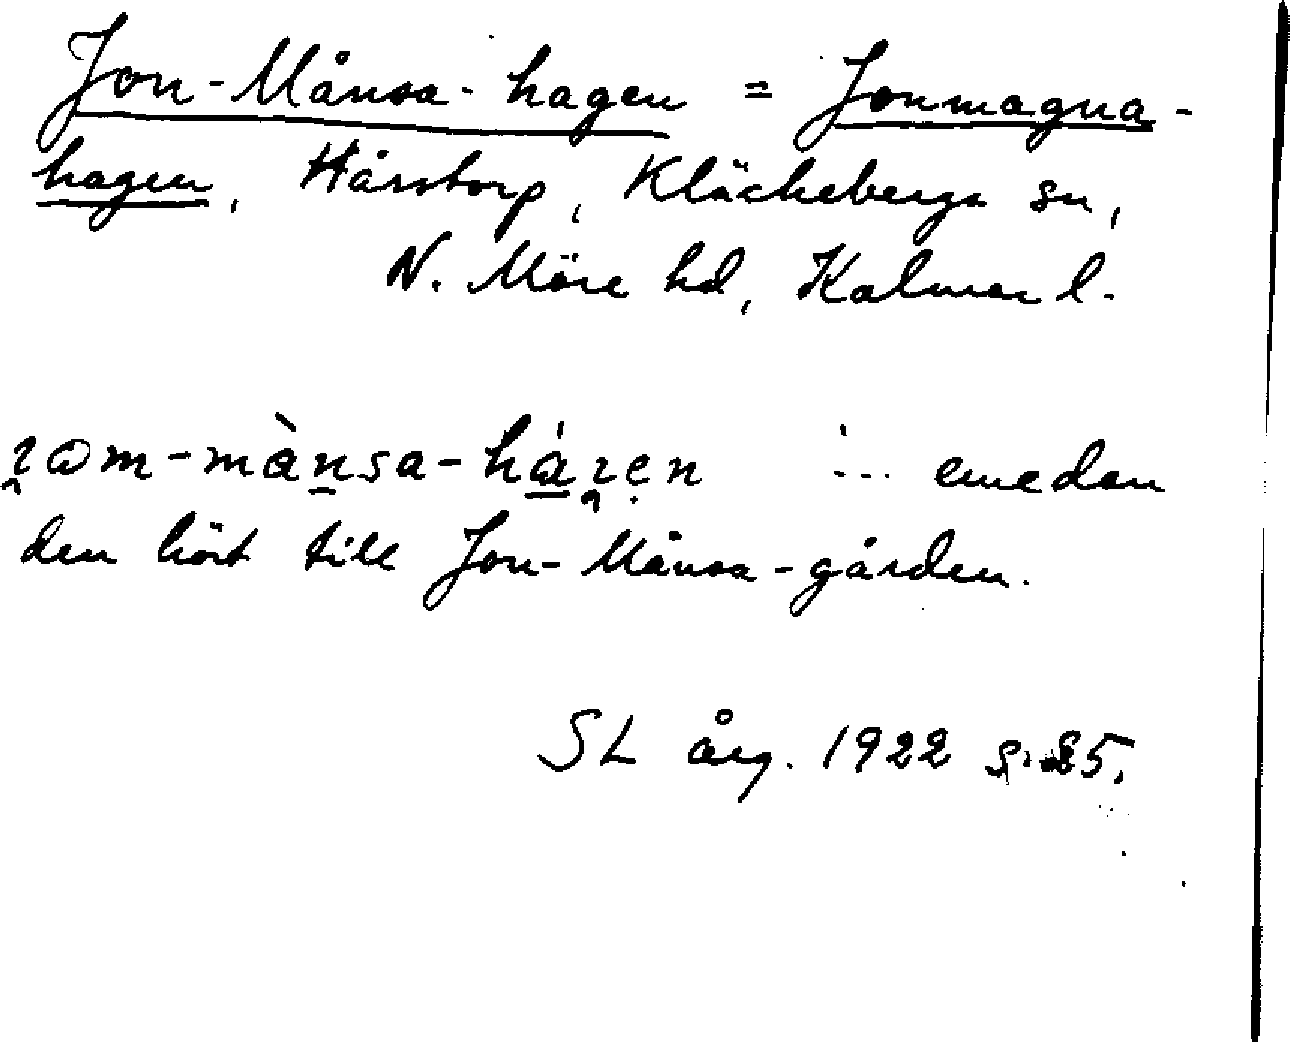 Jon-Månsa-hagen = Jonmagna-
hagen, Hårstorp, Kläckeberga sn,
N. Möre hd, Kalmar l.
-mànsa- ... emedan
den hört till Jon-Månsa-gården.
SL årg. 1922 s. 85.